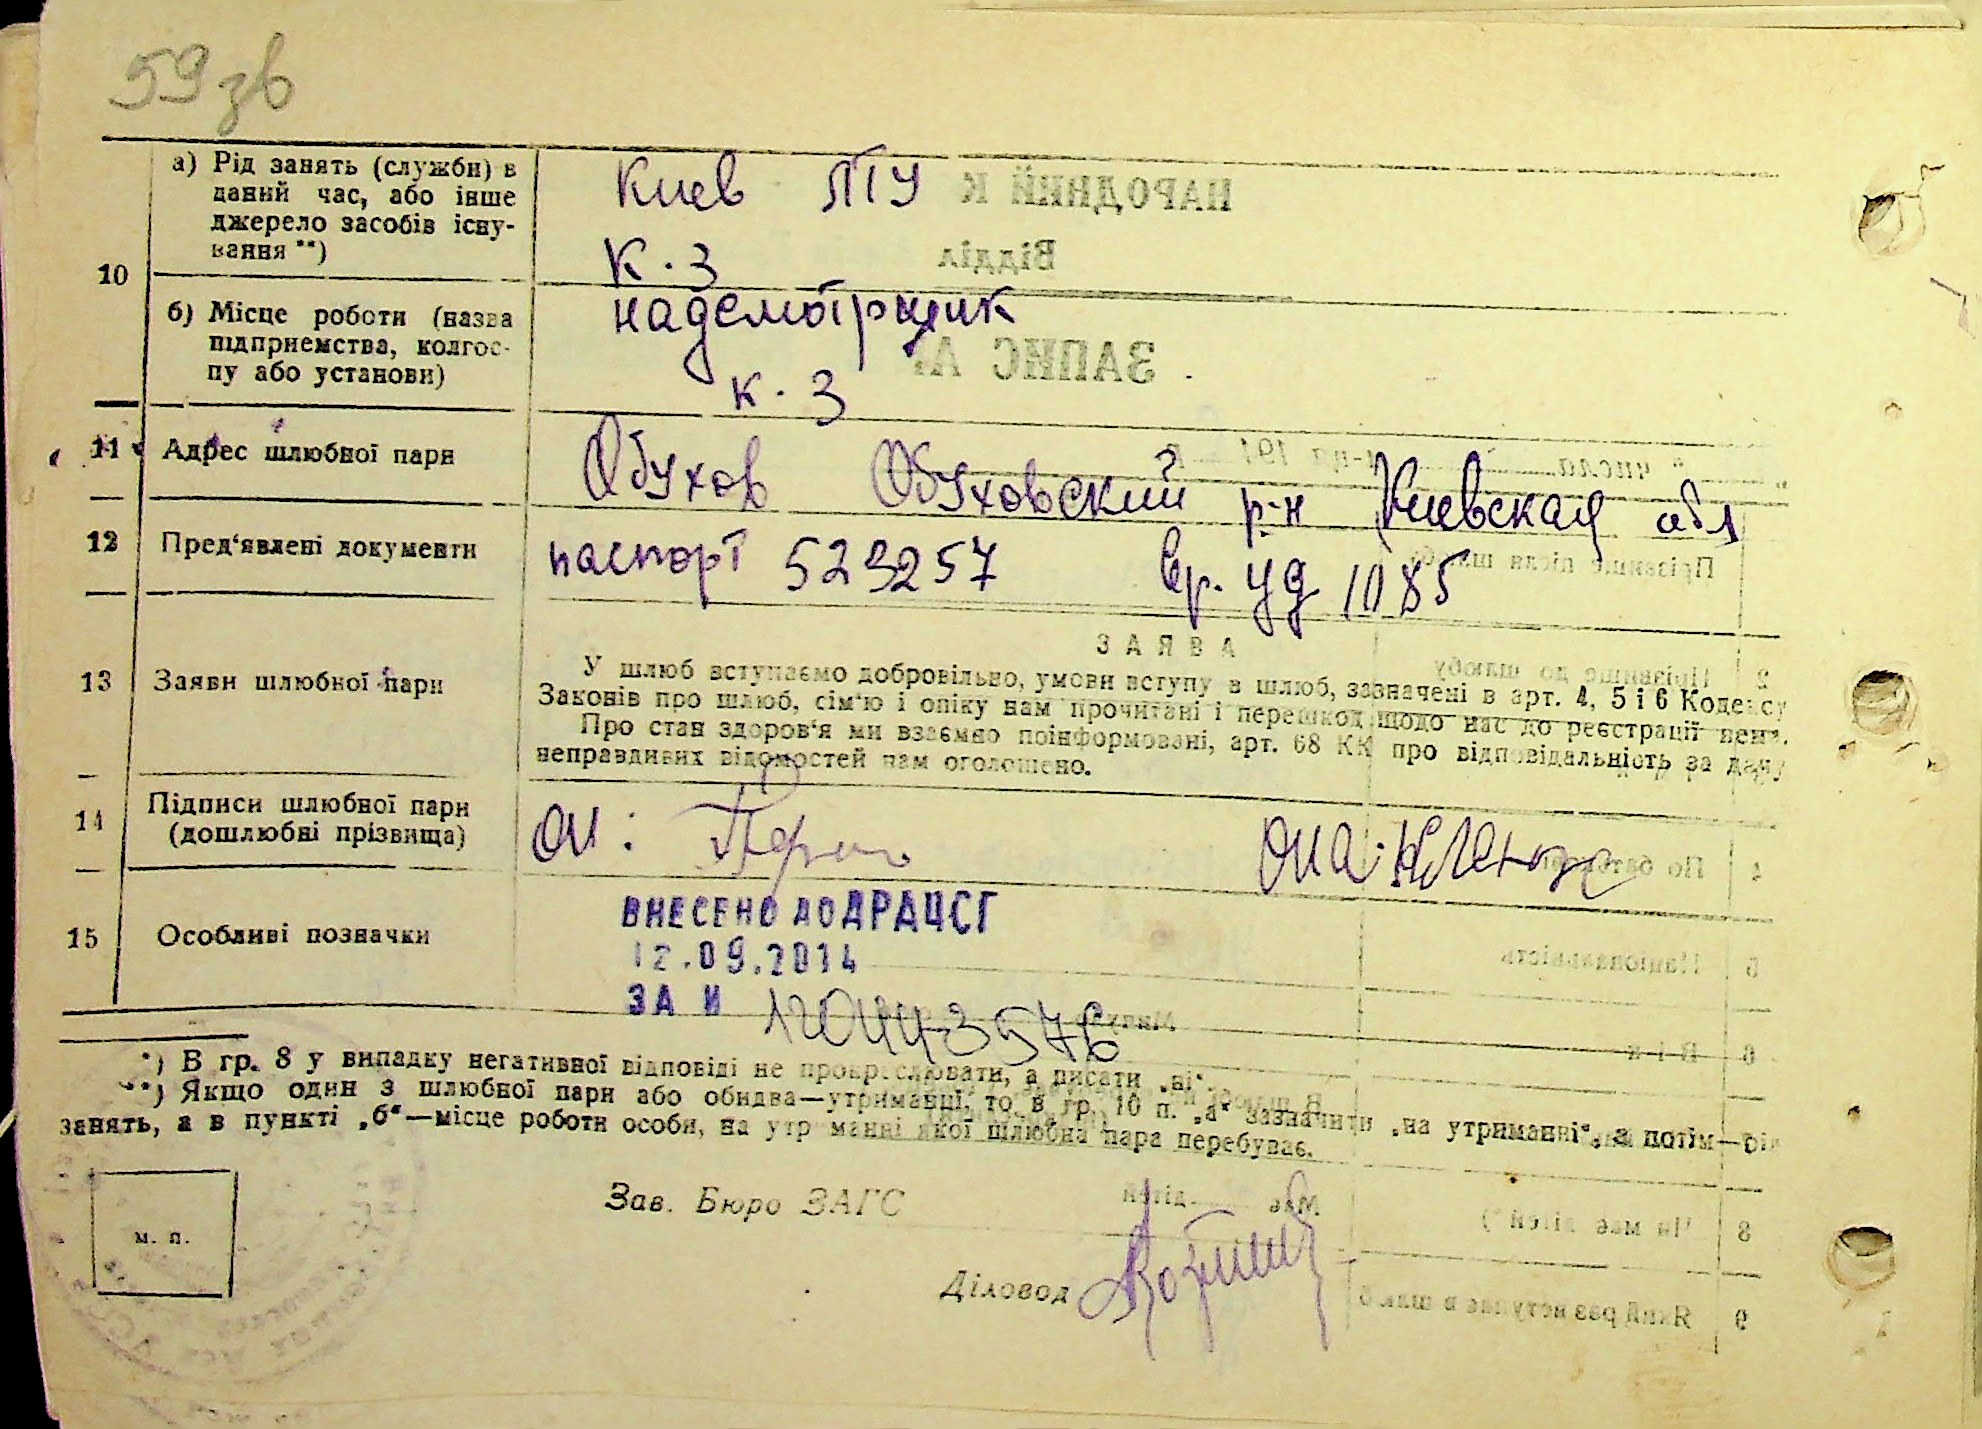 59 зв
а) Рід занять (служби) в
даний час, або інше
джерело засобів існу-
вання **)
Киев ПТУ
к. з
10
б) Місце роботи (назва
підприємства, колгос-
пу або установи)
к. з
11 Адрес шлюбної пари
Обухов Обуховский р-н Киевская обл
12 Пред'явлені документи
паспорт 529257 вр. уд 1085
13 Заяви шлюбної пари
ЗАЯВА
У шлюб вступаємо добровільно, умови вступу в шлюб, зазначені в арт. 4, 5 і 6 Кодексу
Законів про шлюб, сім'ю і опіку нам прочитані і перешкод щодо нас до реєстрації нема.
Про стан здоров'я ми взаємно поінформовані, арт. 68 КК про відповідальність за дачу
неправдивих відомостей нам оголошено.
14 Підписи шлюбної пари
(дошлюбні прізвища)
он: она:
15 Особливі позначки
ВНЕСЕНО ДО ДРАЦСГ
12.09.2014
ЗА №
*) В гр. 8 у випадку негативної відповіді не прокреслювати, а писати „ні".
**) Якщо один з шлюбної пари або обидва—утриманці, то в гр. 10 п. „а" зазначити „на утриманні", а потім—рід
занять, а в пункті „б"—місце роботи особи, на утриманні якої шлюбна пара перебуває.
м. п.
Зав. Бюро ЗАГС
Діловод